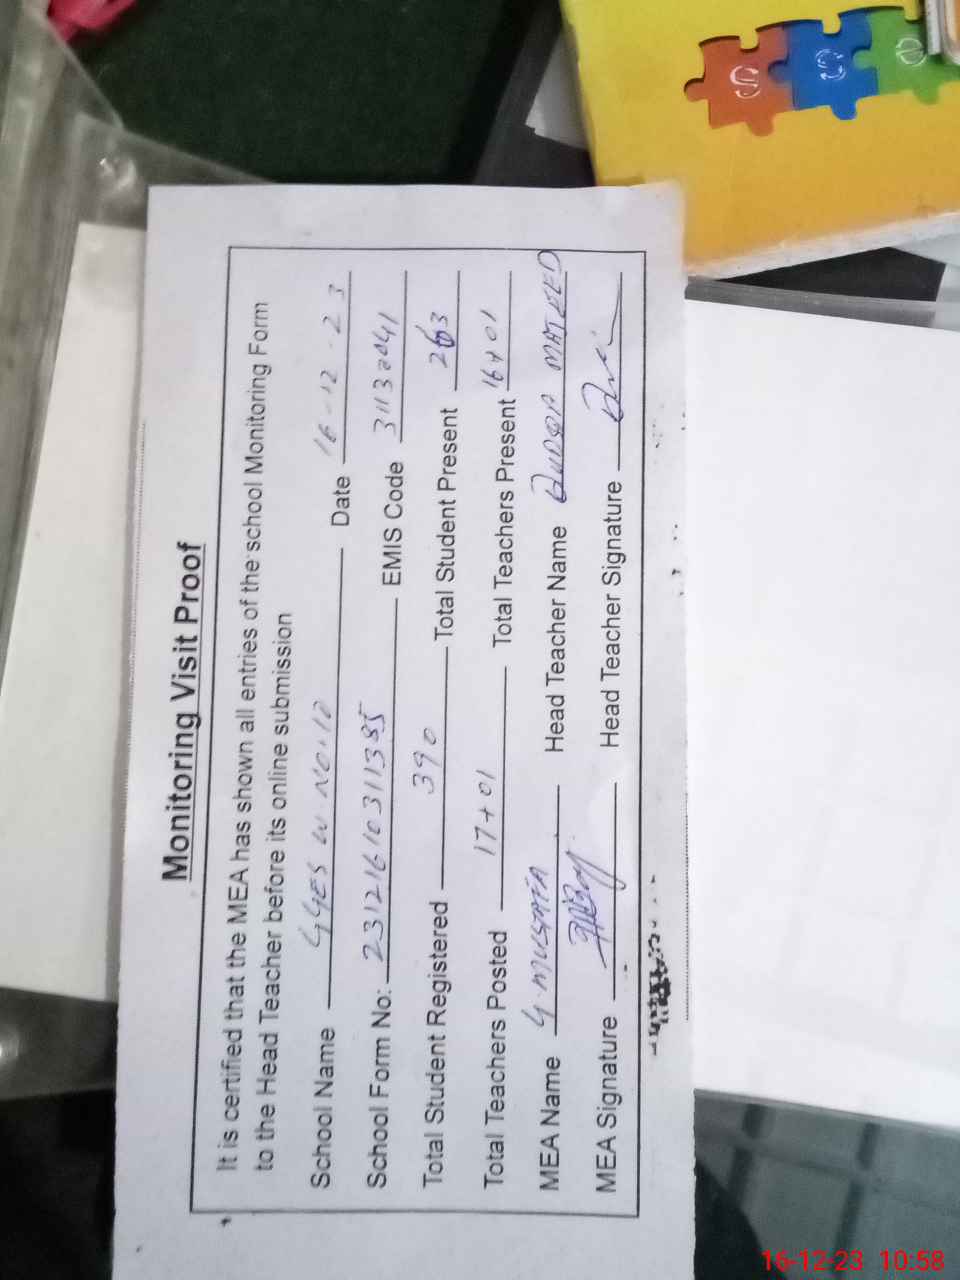 Monitoring Visit Proof
It is certified that the MEA has shown all entries of the school Monitoring Form
to the Head Teacher before its online submission
School Name GGES W No.10 Date 16-12-23
School Form No: 23121610311385 EMIS Code 31132041
Total Student Registered 390 Total Student Present 263
Total Teachers Posted 17+01 Total Teachers Present 16+01
MEA Name G. Mustafa Head Teacher Name MATEED
MEA Signature Head Teacher Signature
16-12-23 10:58